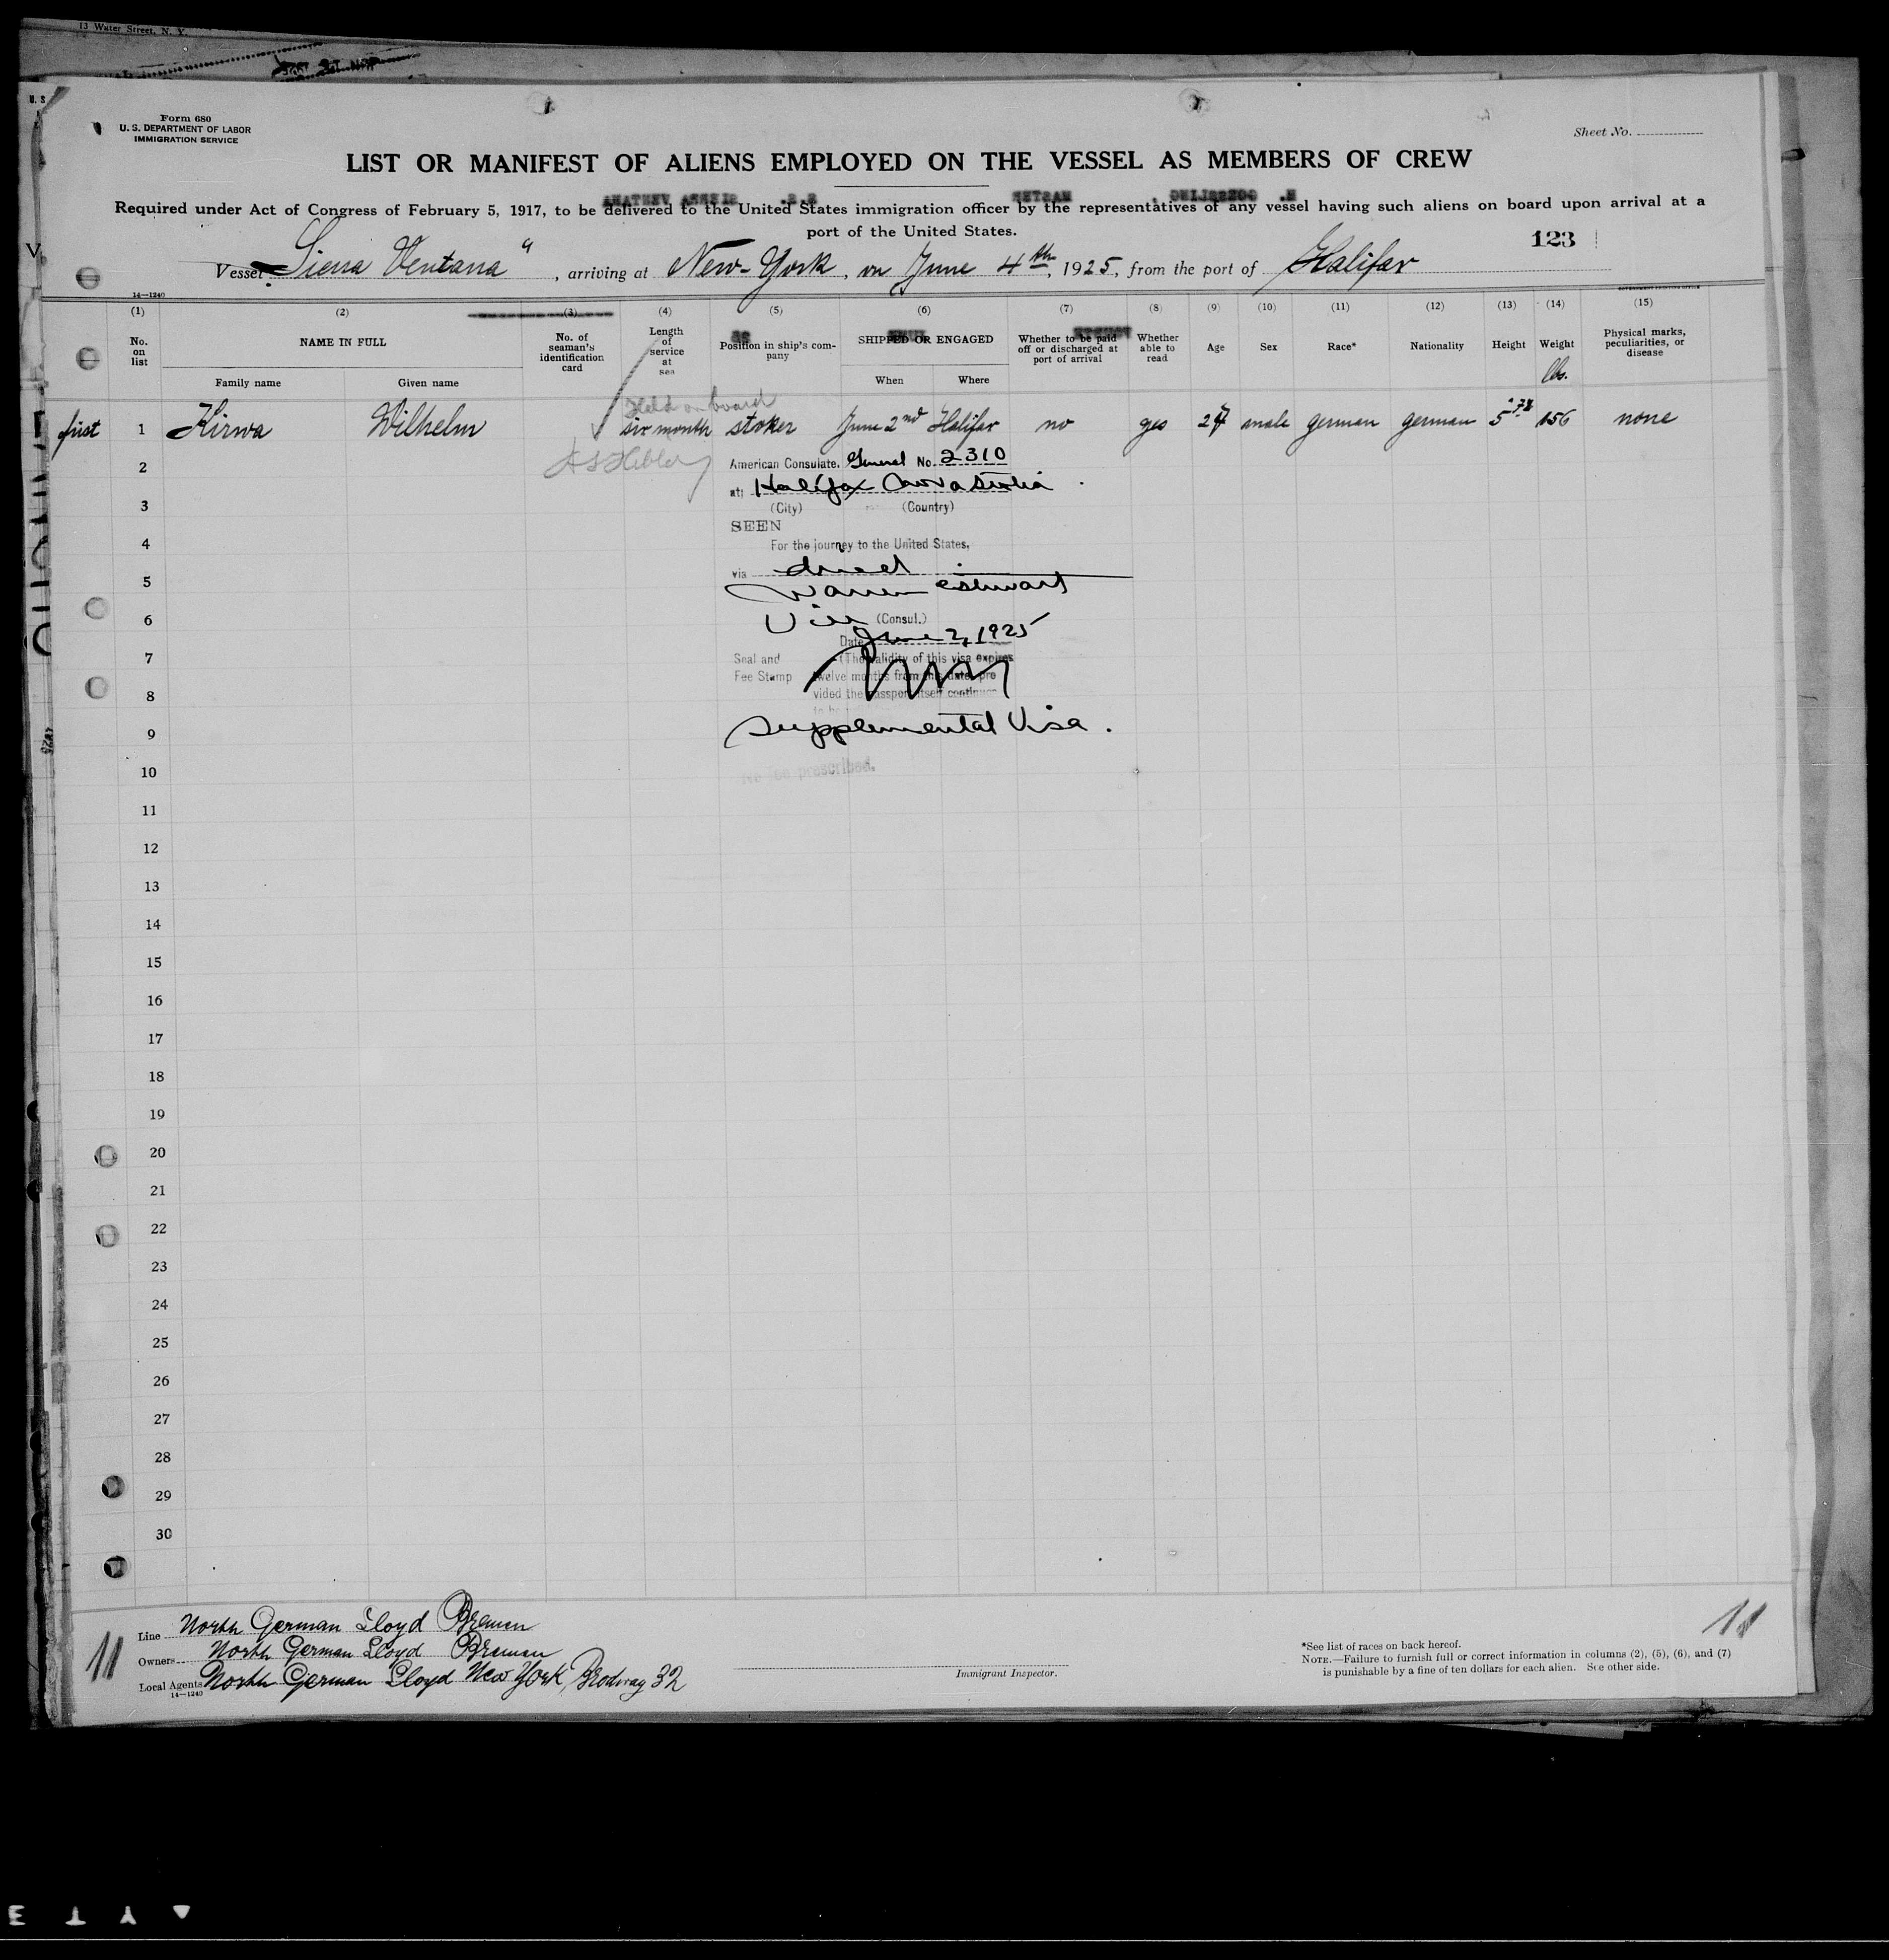 13 Water Street, N. Y.
U. S
Form 680
U. S. DEPARTMENT OF LABOR
IMMIGRATION SERVICE
Sheet No.
LIST OR MANIFEST OF ALIENS EMPLOYED ON THE VESSEL AS MEMBERS OF CREW
Required under Act of Congress of February 5, 1917, to be delivered to the United States immigration officer by the representatives of any vessel having such aliens on board upon arrival at a
port of the United States.
123
Vessel Sierra Ventana", arriving at New-York, on June 4th, 1925, from the port of Halifax
14—1240
(1) (2) (3) (4) (5) (6) (7) (8) (9) (10) (11) (12) (13) (14) (15)
No. on list
NAME IN FULL
Family name Given name
No. of seaman's identification card
Length of service at sea
Position in ship's company
SHIPPED OR ENGAGED
When Where
Whether to be paid off or discharged at port of arrival
Whether able to read
Age
Sex
Race*
Nationality
Height
Weight
lbs.
Physical marks, peculiarities, or disease
Held on board
first 1 Kirwa Wilhelm six month stoker June 2nd Halifax no yes 27 male german german 5 156 none
2
American Consulate. General No. 2310
at: Halifax Nova Scotia
3
(City) (Country)
SEEN
4
For the journey to the United States,
via direct
5
6
(Consul.)
Date June 2, 1925
7
Seal and (The validity of this visa expires
Fee Stamp twelve months from this date, pro
8
vided the passport itself continues
9
Supplemental Visa.
10
No fee prescribed.
11
12
13
14
15
16
17
18
19
20
21
22
23
24
25
26
27
28
29
30
11
Line North German Lloyd Bremen
Owners North German Lloyd Bremen
Local Agents North German Lloyd New York, Brodway 32
14—1240
Immigrant Inspector.
*See list of races on back hereof.
NOTE.—Failure to furnish full or correct information in columns (2), (5), (6), and (7)
is punishable by a fine of ten dollars for each alien. See other side.